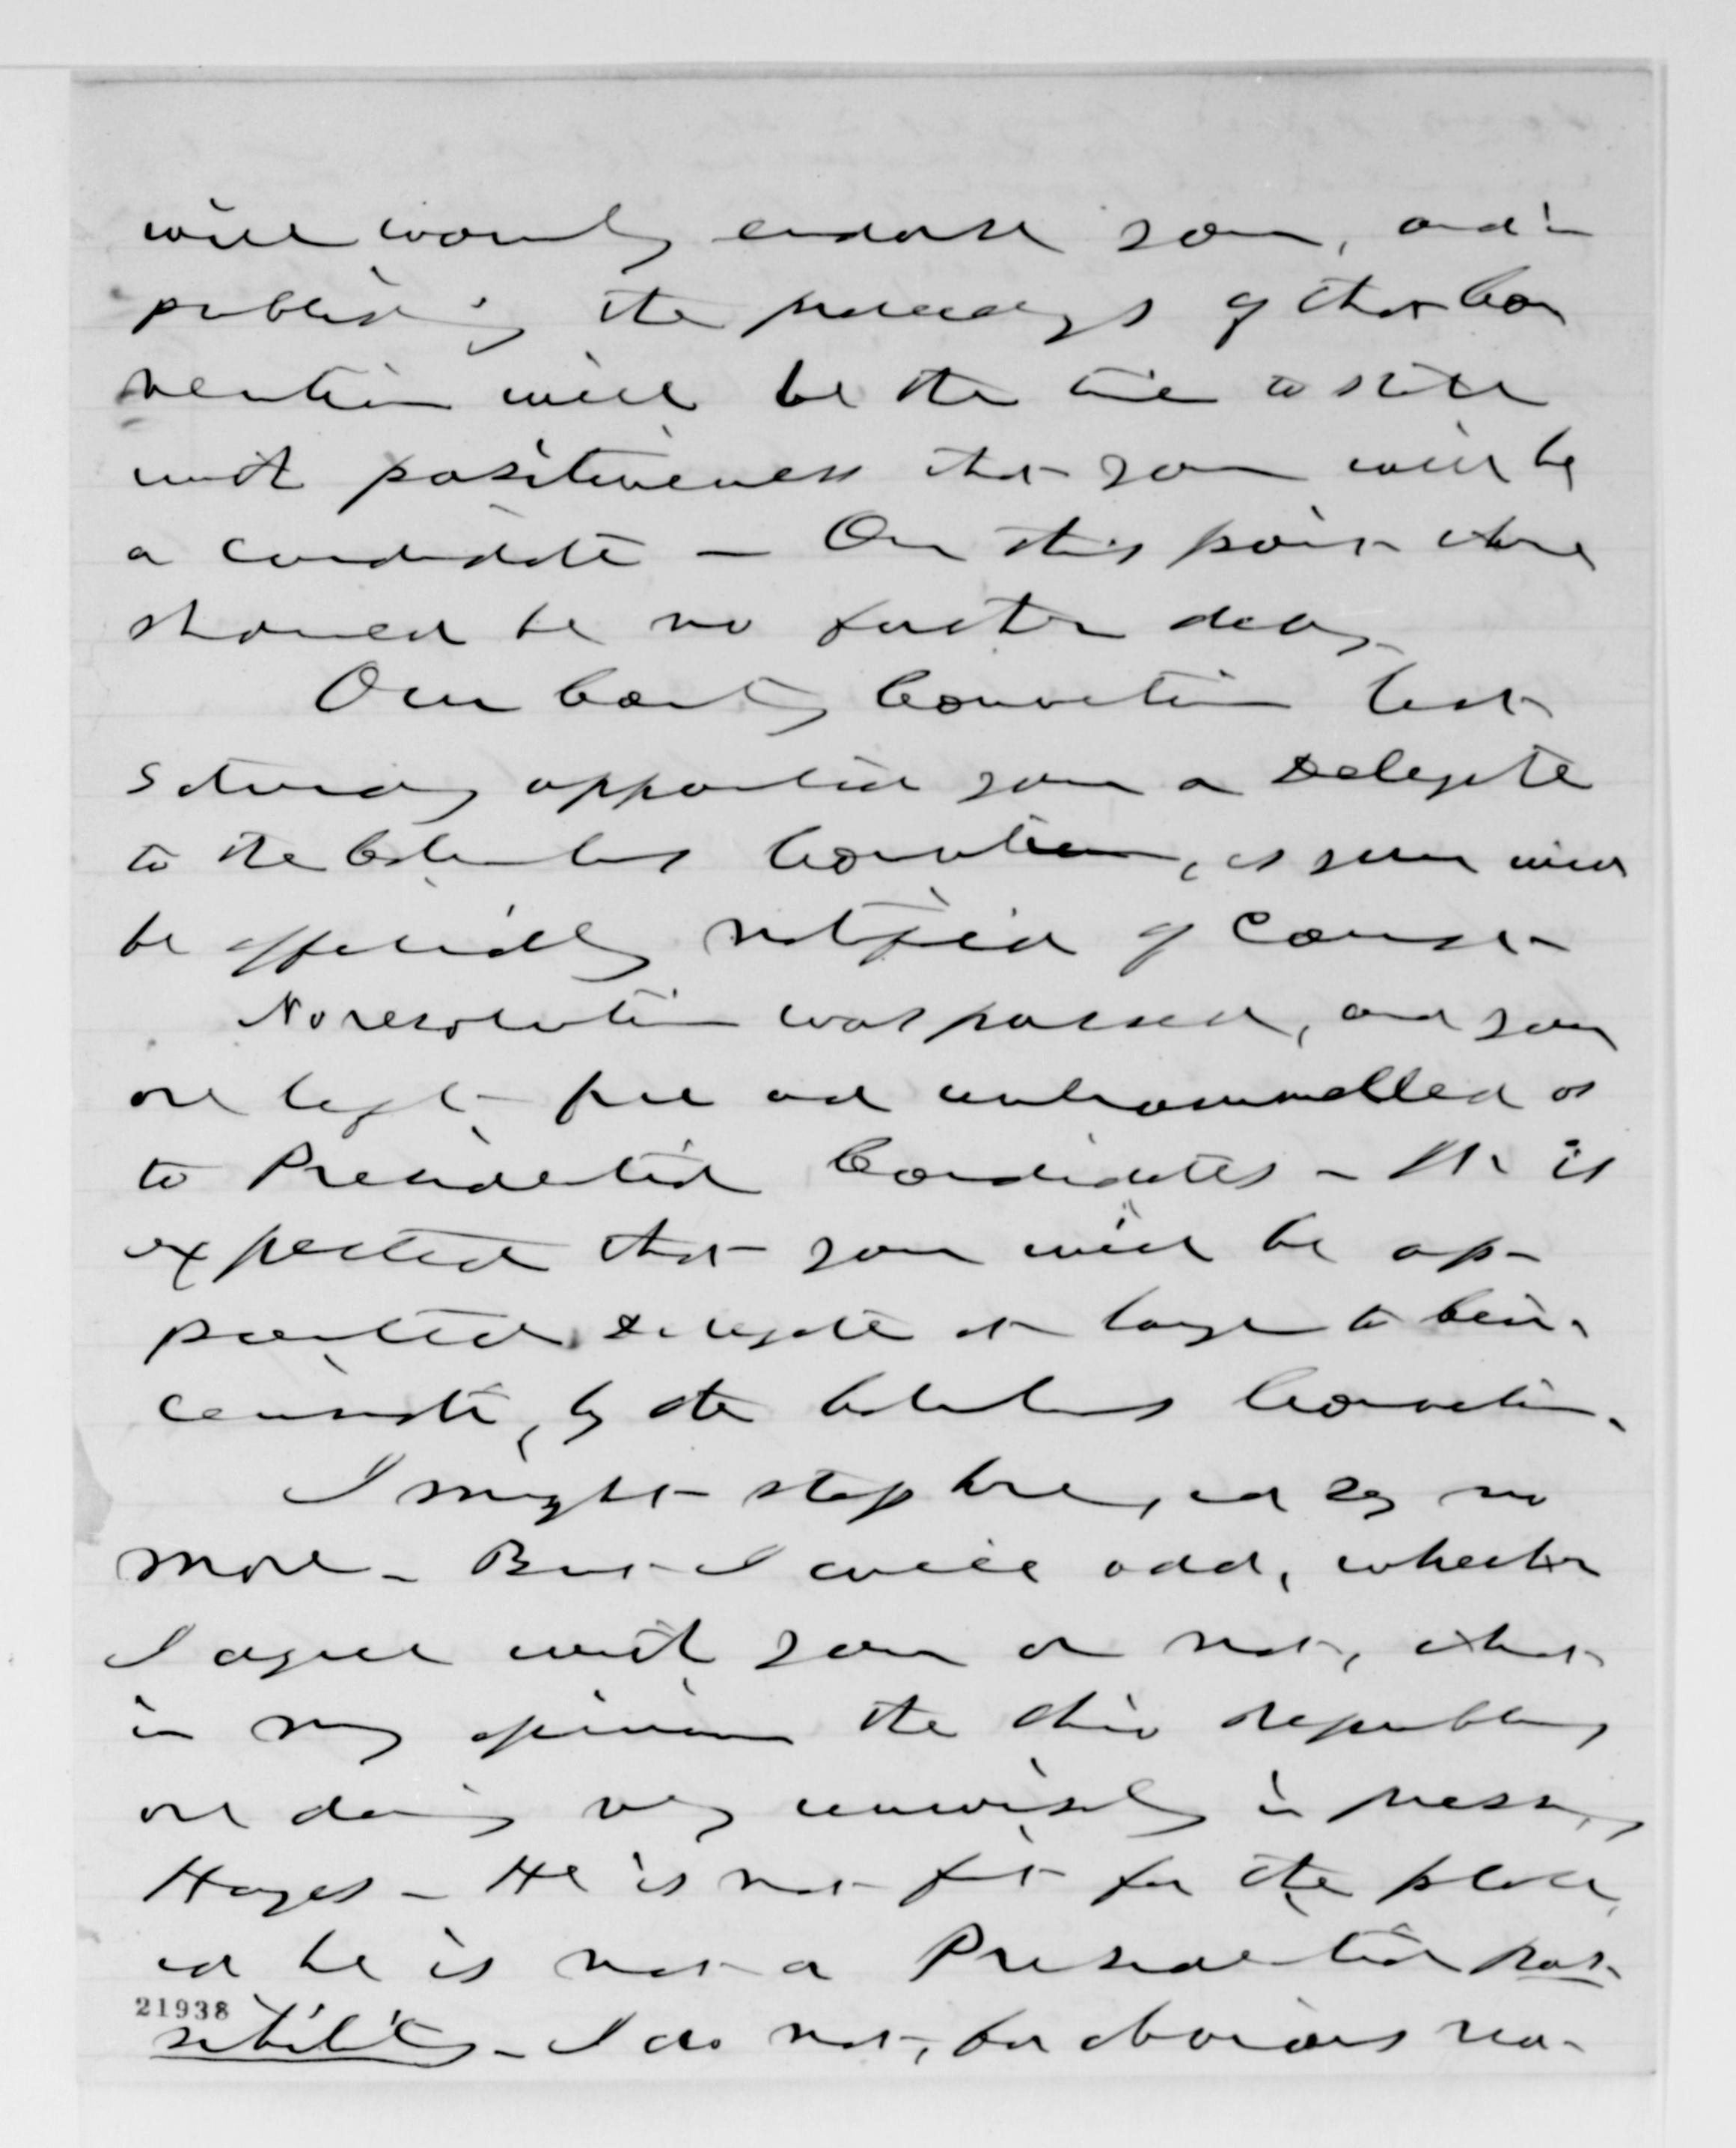 will warmly endorse you, and in
publishing the proceedings of that Con
vention will be the time to state
with positiveness that you will be
a candidate — On this point there
should be no further delay.
Our County Convention last
Saturday appointed you a Delegate
to the Columbus Convention, as you will
be officially notified of course -
No resolution was passed, and you
are left free and untrammelled as
to Presidential Candidates - It is
expected that you will be ap-
pointed Delegate at large to Cin-
cinnati, by the Columbus Convention.
I might stop here, and say no
more - But I will add, whether
I agree with you or not, that
in my opinion the Ohio Republicans
are doing very unwisely in pressing
Hayes - He is not fit for the place,
and he is not a Presidential pos-
sibility - I do not, for obvious rea-
21938